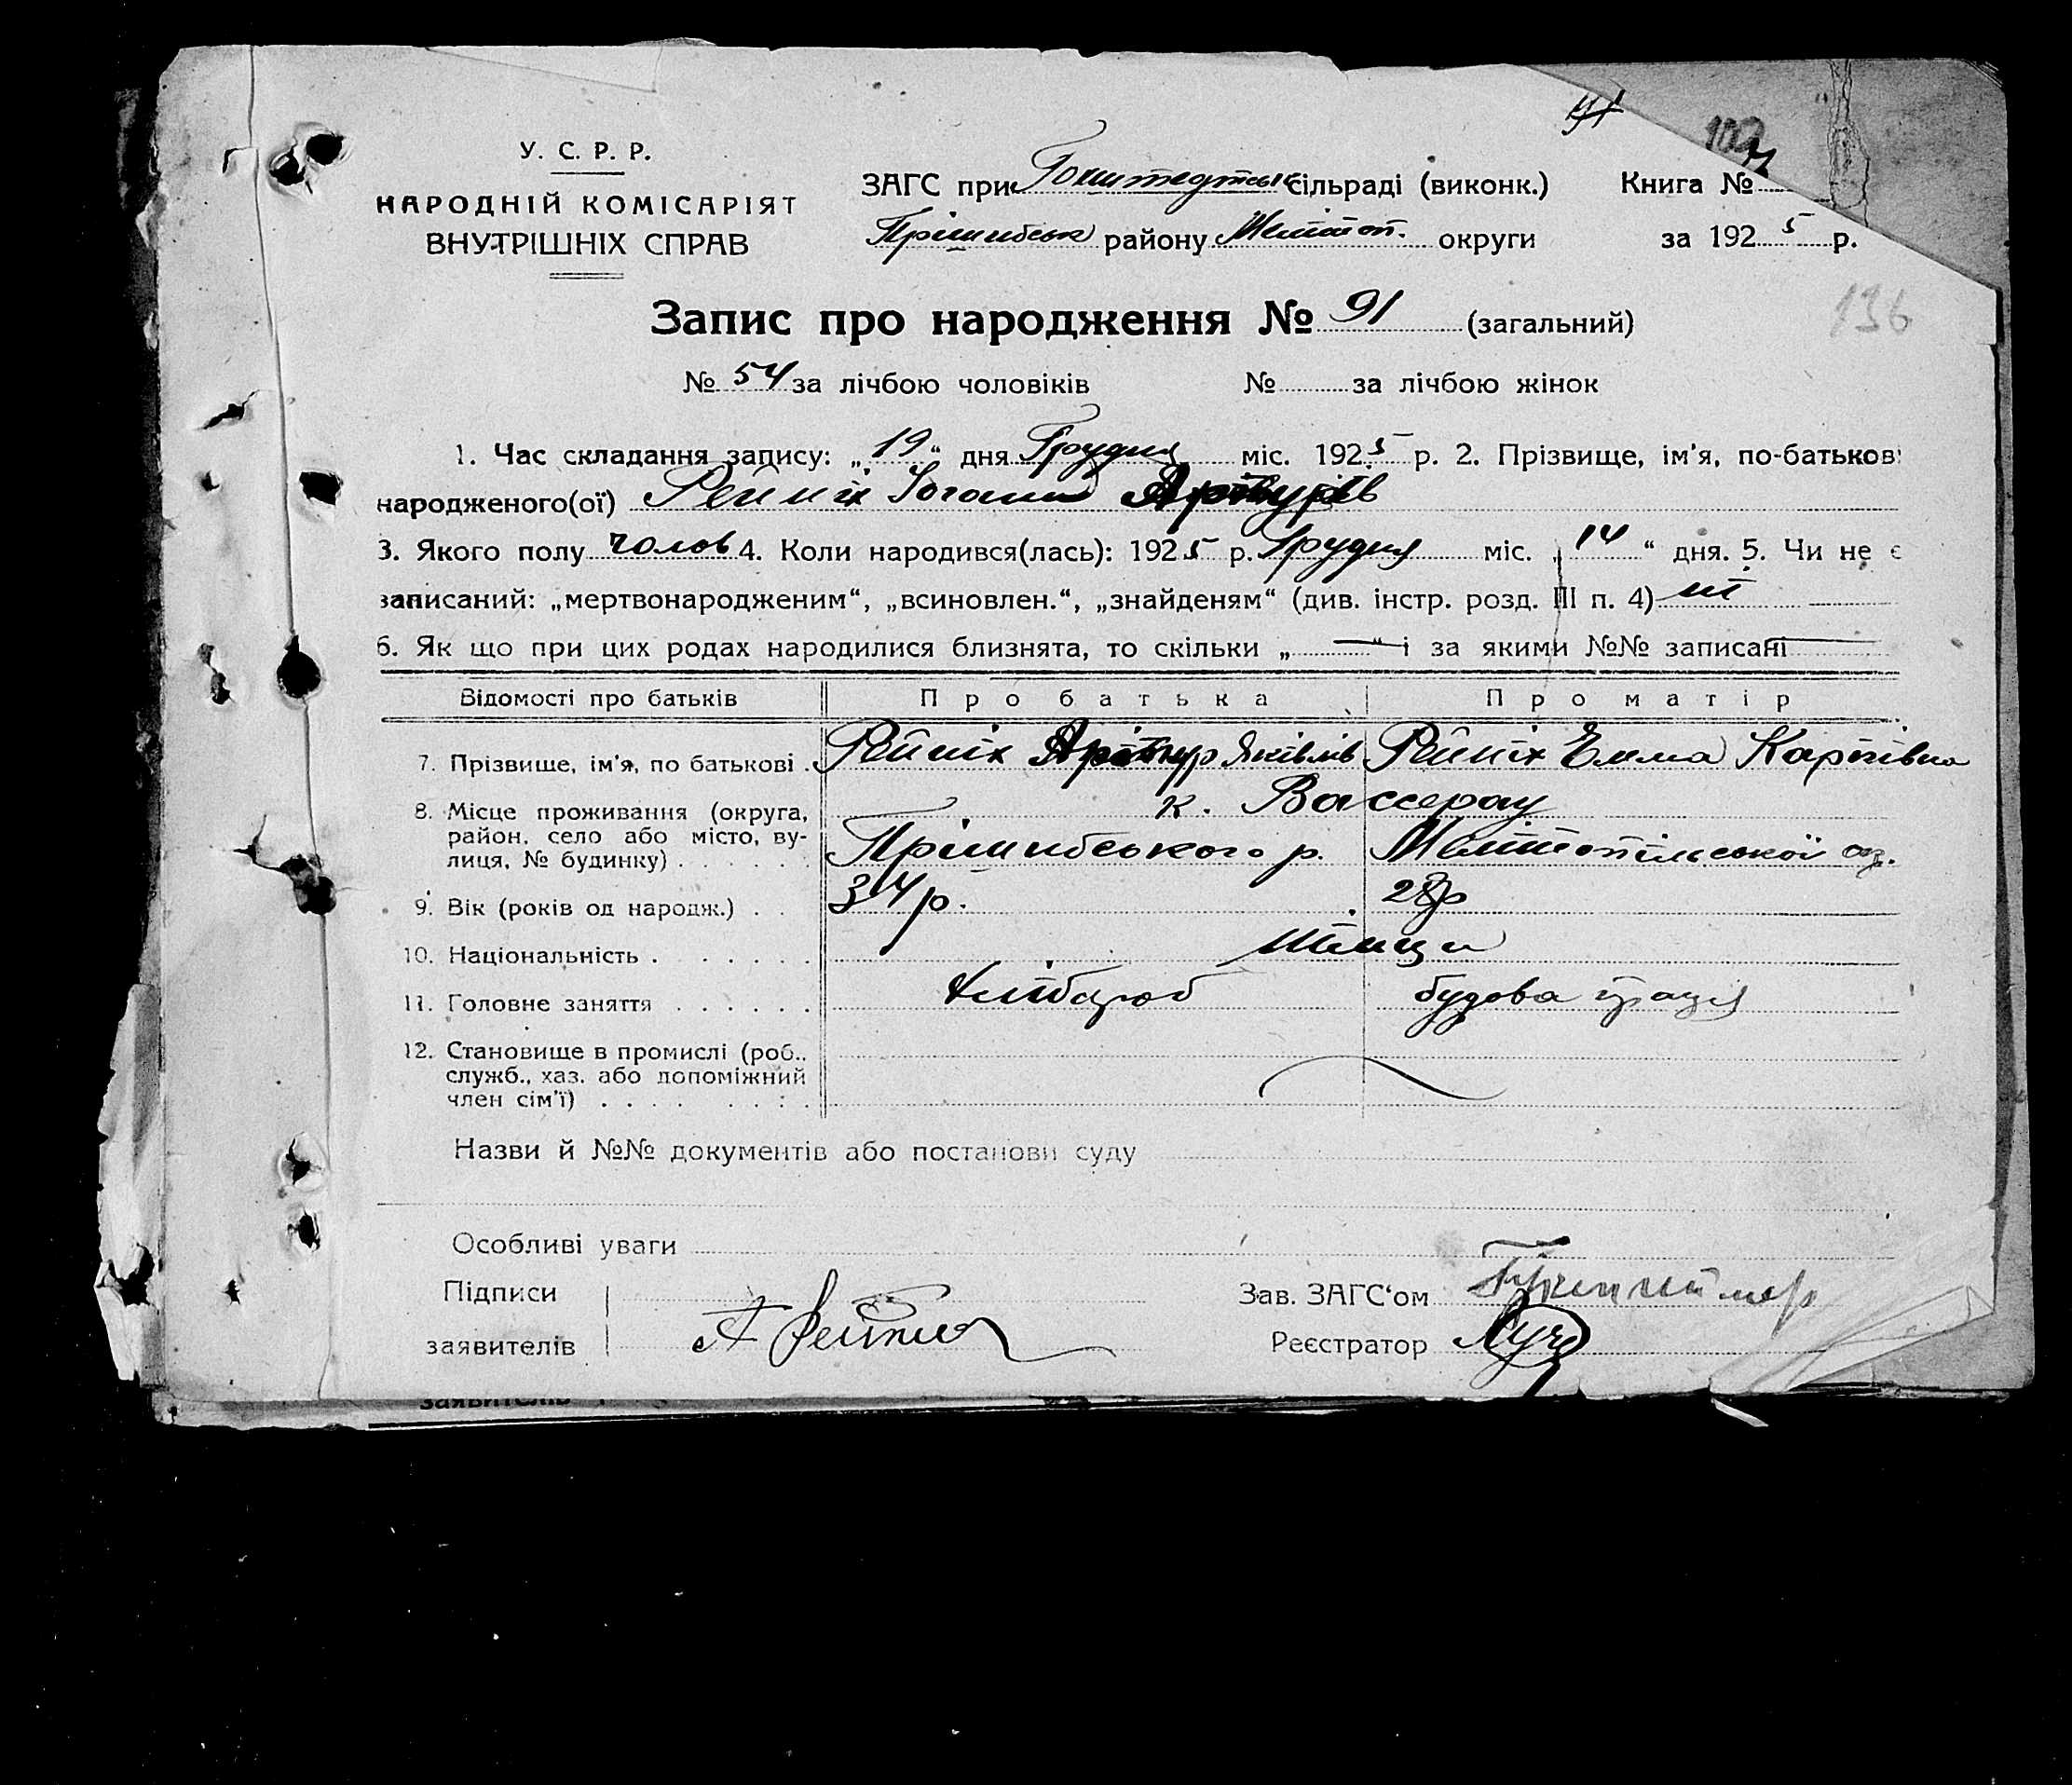 У. С. Р. Р.
НАРОДНІЙ КОМІСАРІЯТ
ВНУТРІШНІХ СПРАВ
ЗАГС при Гокштедтськ сільраді (виконк.)
Пришибськ району Мелітоп. округи
Книга №
за 1925 р.
91
102
136
Запис про народження № 91 (загальний)
№ 54 за лічбою чоловіків № за лічбою жінок
1. Час складання запису: „19“ дня Грудня міс. 1925 р. 2. Прізвище, ім'я, по-батькові
народженого(ої) Рейпіх Іоганн Артурів
3. Якого полу чолов 4. Коли народився(лась): 1925 р. Грудня міс. „14“ дня. 5. Чи не є
записаний: „мертвонародженим“, „всиновлен.“, „знайденям“ (див. інстр. розд. III п. 4) ні
6. Як що при цих родах народилися близнята, то скільки „ — “ і за якими №№ записані —
Відомості про батьків Про батька Про матір
7. Прізвише, ім'я, по батькові . Рейпіх Артур Яківлів Рейпіх Емма Карпівна
8. Місце проживання (округа, к. Вассерау
район, село або місто, ву- Пришибського р. Мелітопільської ок.
лиця, № будинку) . . . . . .
9. Вік (років од народж.) . . 34 р. 28 р
10. Національність . . . . . . . Німци
11. Головне заняття . . . . . . Хлібороб будова праця
12. Становище в промислі (роб.,
служб., хаз. або допоміжний
член сім'ї) . . . . . . . .
Назви й №№ документів або постанови суду
Особливі уваги
Підписи Зав. ЗАГС'ом
заявителів А Рейпих Реєстратор
заявителів